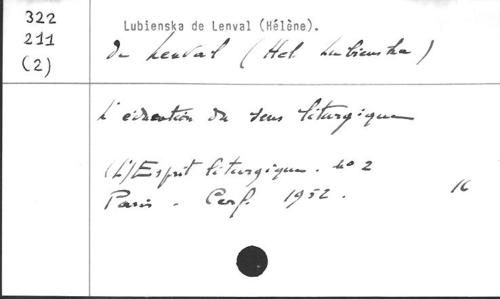 322
211
(2)
Lubienska de Lenval (Hélène).
de Lenval (Hel Lubienska)
L'éducation du sens liturgique
(L')Esprit liturgique. no 2
Paris - Cerf. 1952.
16